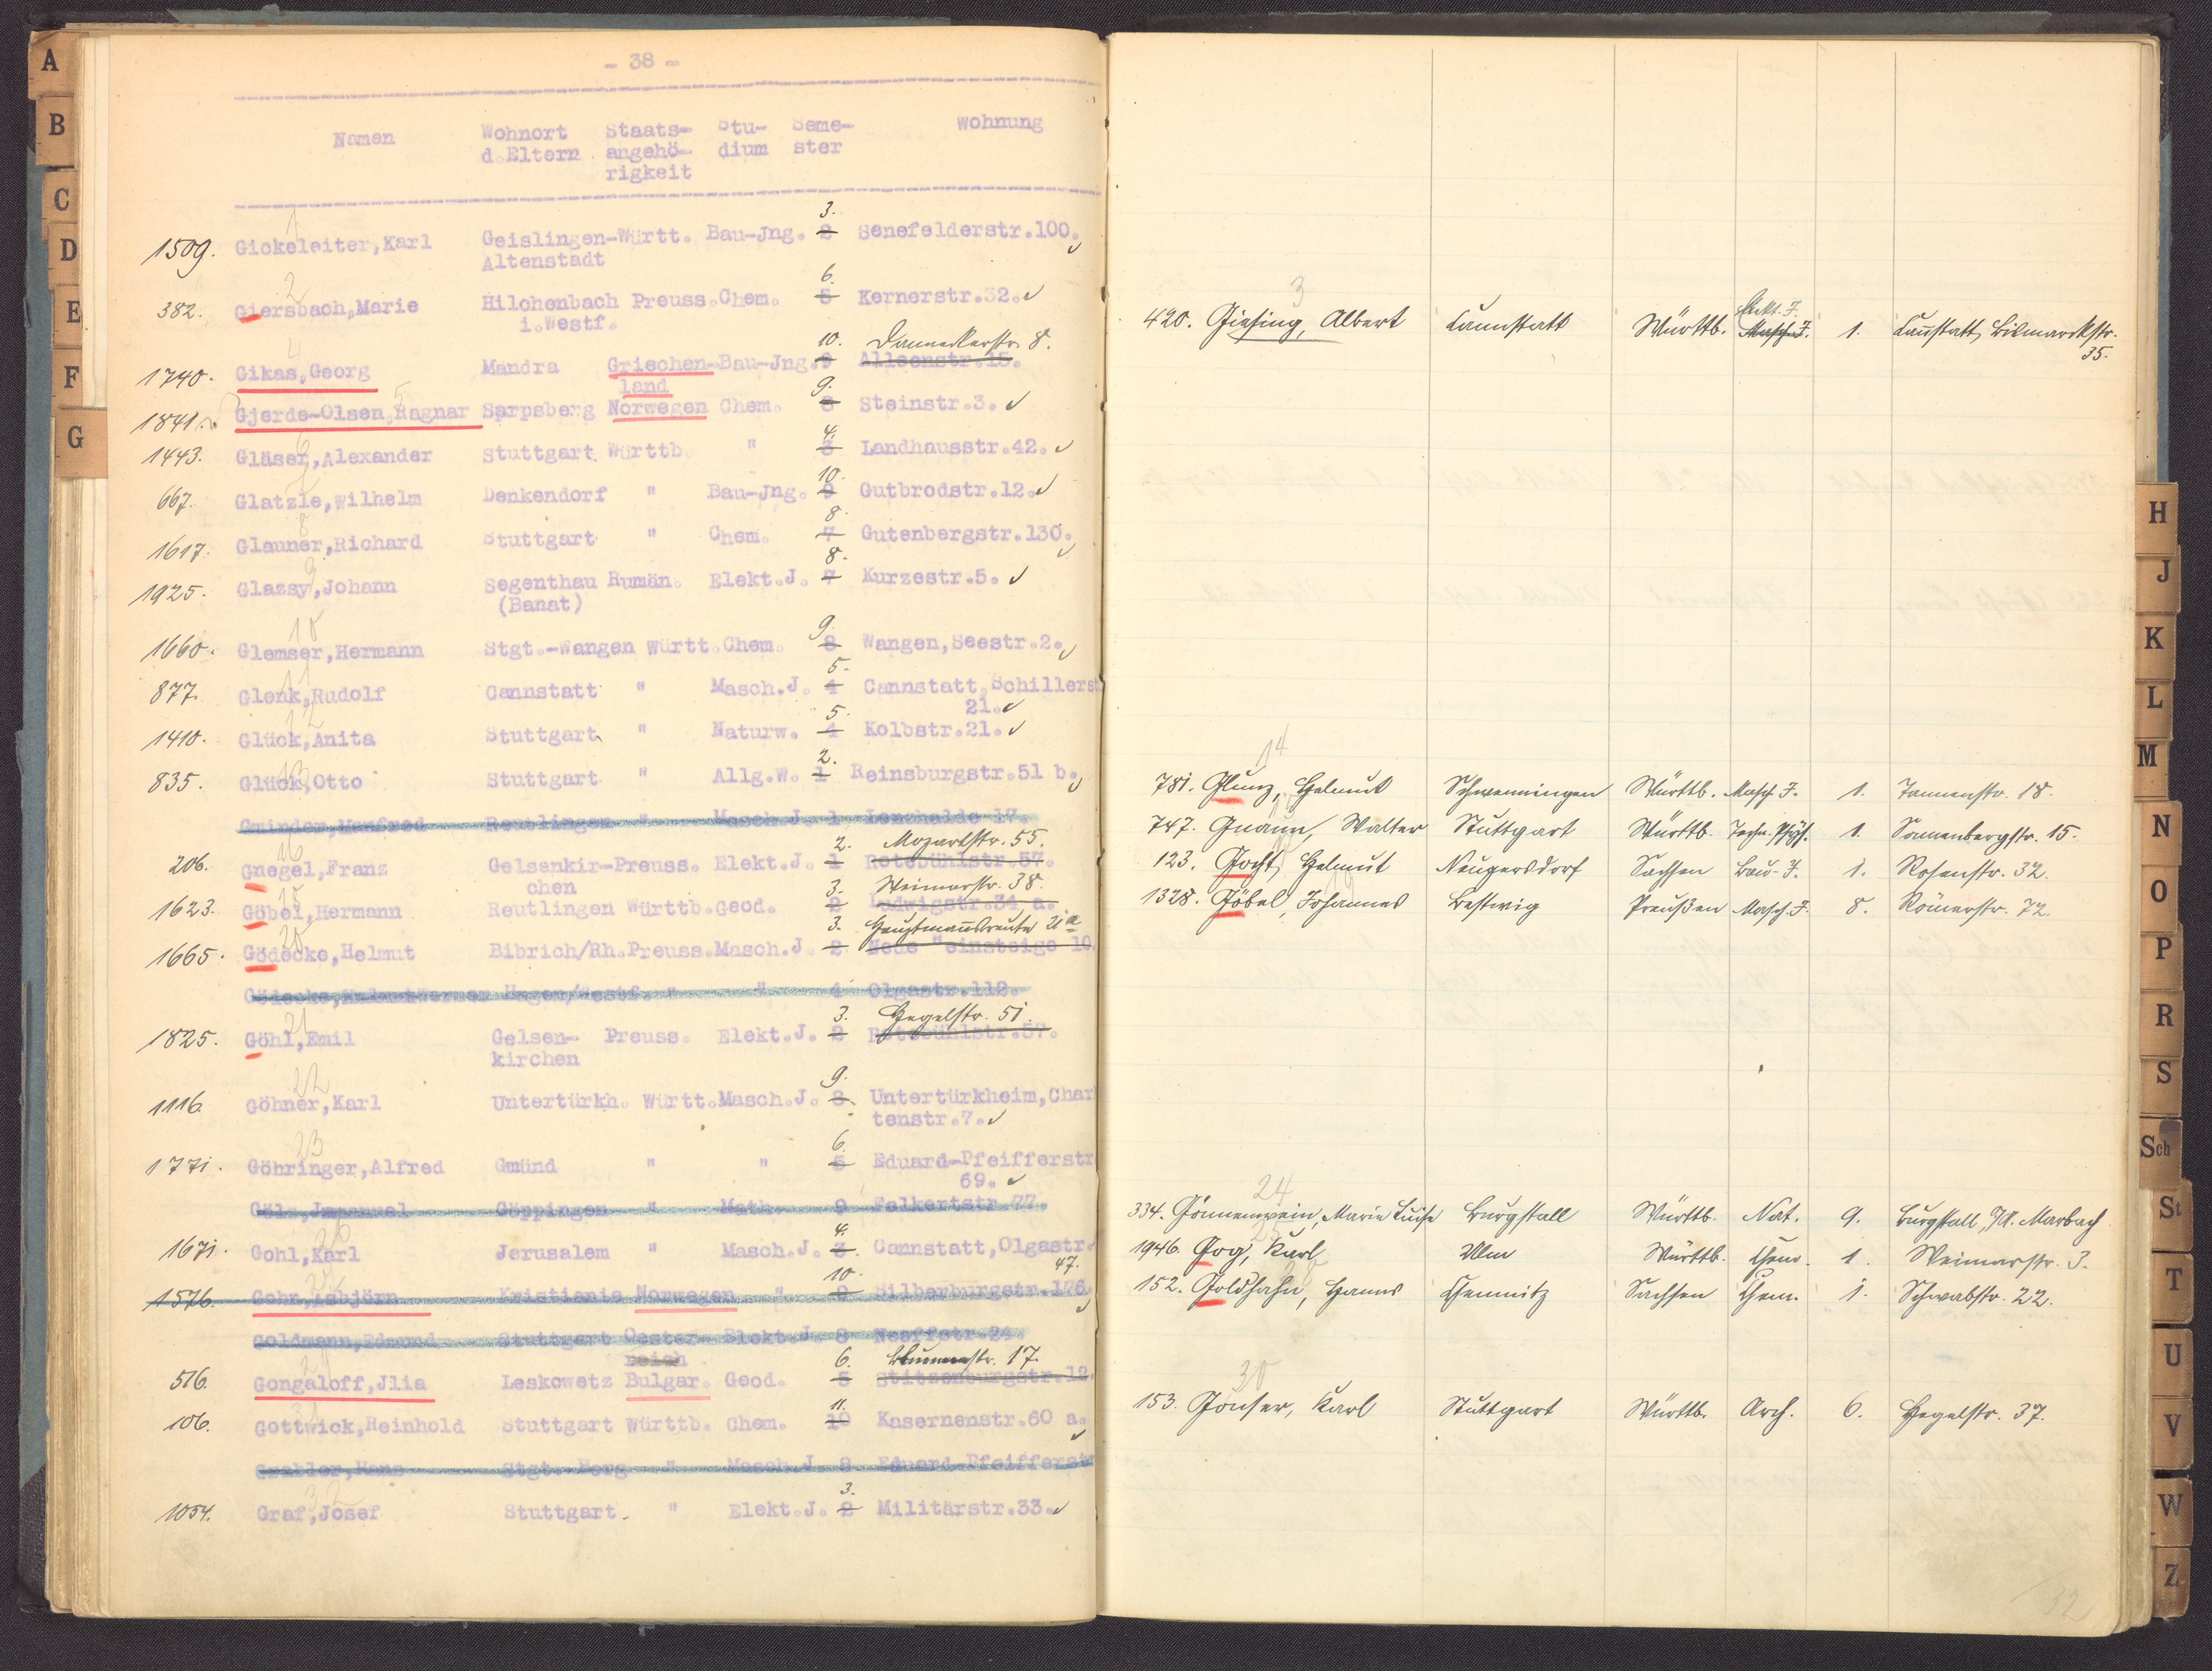 - 38 -
Namen Wohnort d.Eltern Staats-angehö-rigkeit Stu-dium Seme-ster Wohnung
3.
1509. Gickeleiter,Karl Geislingen-Württ. Bau-Jng. 2 Senefelderstr.100.
Altenstadt
6.
382. Giersbach,Marie Hilchenbach Preuss.Chem. 5 Kernerstr.32.
i.Westf.
10. Danneckerstr. 8.
1740. Gikas,Georg Mandra Griechen-Bau-Jng.9 Alleenstr.15.
land
9.
1841. Gjerde-Olsen,Ragnar Sarpsberg Norwegen Chem. 8 Steinstr.3.
4.
1443. Gläser,Alexander Stuttgart Württb. " 3 Landhausstr.42.
10.
667. Glatzle,Wilhelm Denkendorf " Bau-Jng. 9 Gutbrodstr.12.
8.
1617. Glauner,Richard Stuttgart " Chem. 7 Gutenbergstr.130.
8.
1925. Glazsy,Johann Segenthau Rumän. Elekt.J. 7 Kurzestr.5.
(Banat)
9.
1660. Glemser,Hermann Stgt.-Wangen Württ.Chem. 8 Wangen,Seestr.2.
5.
877. Glenk,Rudolf Cannstatt " Masch.J. 4 Cannstatt,Schillerst
21.
5.
1410. Glück,Anita Stuttgart " Naturw. 4 Kolbstr.21.
2.
835. Glück,Otto Stuttgart " Allg.W. 1 Reinsburgstr.51 b.
Gminder,Manfred Reutlingen " Masch.J. 1 Lenzhalde 17.
2. Mozartstr. 55.
206. Gnegel,Franz Gelsenkir-Preuss. Elekt.J. 1 Rotebühlstr.57.
chen
3. Weimarstr. 38.
1623. Göbel,Hermann Reutlingen Württb.Geod. 2 Ludwigstr.34 a.
3. Hauptmannsreute 21 a
1665. Gödecke,Helmut Bibrich/Rh.Preuss.Masch.J. 2 Neue Weinsteige 10
Hagen/Westf. " " 4 Olgastr.112.
3. Hegelstr. 51.
1825. Göhl,Emil Gelsen- Preuss. Elekt.J. 2 Rotebühlstr.57.
kirchen
9.
1116. Göhner,Karl Untertürkh. Württ.Masch.J. 8. Untertürkheim,Char
tenstr.7.
6.
1771. Göhringer,Alfred Gmünd " " 5 Eduard-Pfeifferstr
69.
Gölz,Immanuel Göppingen " Math. 9 Falkertstr.77.
4.
1671. Gohl,Karl Jerusalem " Masch.J. 3. Cannstatt,Olgastr.
47.
10.
1576. Gohr,Asbjörn Kristiania Norwegen " 9 Silberburgstr.176
Goldmann,Edmund Stuttgart Oester- Elekt.J. 8 Neeffstr.24.
reich
6. Blumenstr. 17.
516. Gongaloff,Jlia Leskowetz Bulgar. Geod. 5 Stitzenburgstr.12
11.
106. Gottwick,Reinhold Stuttgart Württb. Chem. 10 Kasernenstr.60 a.
Grabler,Hans Stgt.-Berg " Masch.J. 8 Eduard-Pfeifferst
3.
1054. Graf,Josef Stuttgart. " Elekt.J. 2 Militärstr.33.
3
Elekt. J.
420. Giesing, Albert Cannstatt Württb. Masch. J. 1. Cannstatt, Bismarckstr.
35.
14
781. Glunz, Helmut Schwenningen Württb. Masch. J. 1. Tannenstr. 18.
747. Gnann, Walter Stuttgart Württb. Techn. Phys. 1. Sonnenbergstr. 15.
123. Gocht, Helmut Neugersdorf Sachsen Bau-J. 1. Rosenstr. 32.
1328. Göbel, Johannes Bestwig Preußen Masch. J. 8. Römerstr. 72.
24
334. Gönnenwein, Marie Luise Burgstall Württb. Nat. 9. Burgstall, OA. Marbach
1946. Gog, Karl Ulm Württb. Chem. 1. Weimarstr. 3.
152. Goldhahn, Hanns Chemnitz Sachsen Chem. 1. Schwabstr. 22.
30
153. Gonser, Karl Stuttgart Württb. Arch. 6. Hegelstr. 37.
32
A
B
C
D
E
F
G
H
J
K
L
M
N
O
P
R
S
Sch
St
T
U
V
W
Z